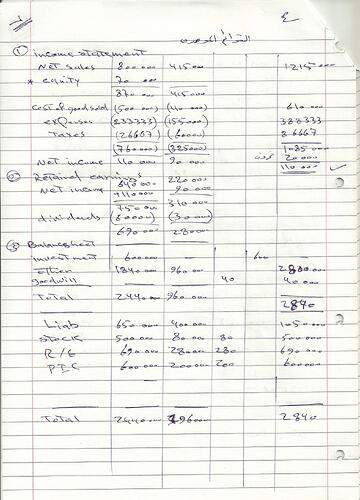 القوائم الموحدة
① income statement
Net sales 800000 415000 1215000
* equity 70000
870000 415000
cost of good sold (500000) (110000) 610000
expenses (233333) (155000) 388333
Taxes (26667) (60000) 86667
(760000) (325000) 1085000
20000
Net income 110000 90000 110000
② Retained earning's
640000 220000
Net income +110000 90000
750000 310000
dividends (60000) (30000)
690000 280000
③ Balance sheet
investment 600000 600
other 1840000 960000 2800000
goodwill 40 40000
Total 2440000 960000 2840
Liab 650000 400000 1050000
Stock 500000 80000 80 500000
R/E 690000 280000 280 690000
PIC 600000 200000 200 600000
Total 2440000 960000 2840